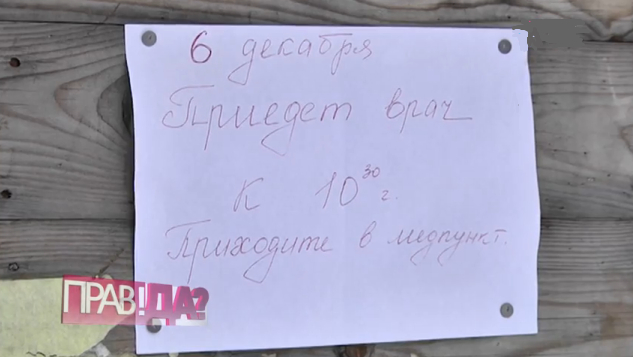 6 декабря
Приедет врач
к 10³⁰ г.
Приходите в медпункт.
ПРАВ!ДА?